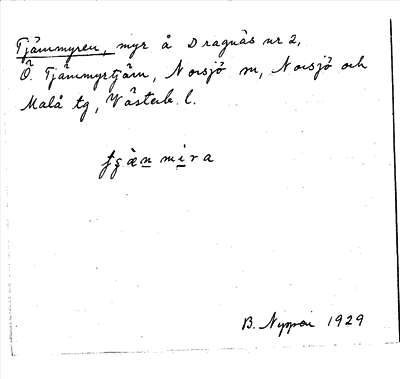 Tjämmyren, myr å Dragnäs nr 2,
Ö. Tjämmyrtjärn, Norsjö sn, Norsjö och
Malå tg, Västerb. l.
B. Nyman 1929